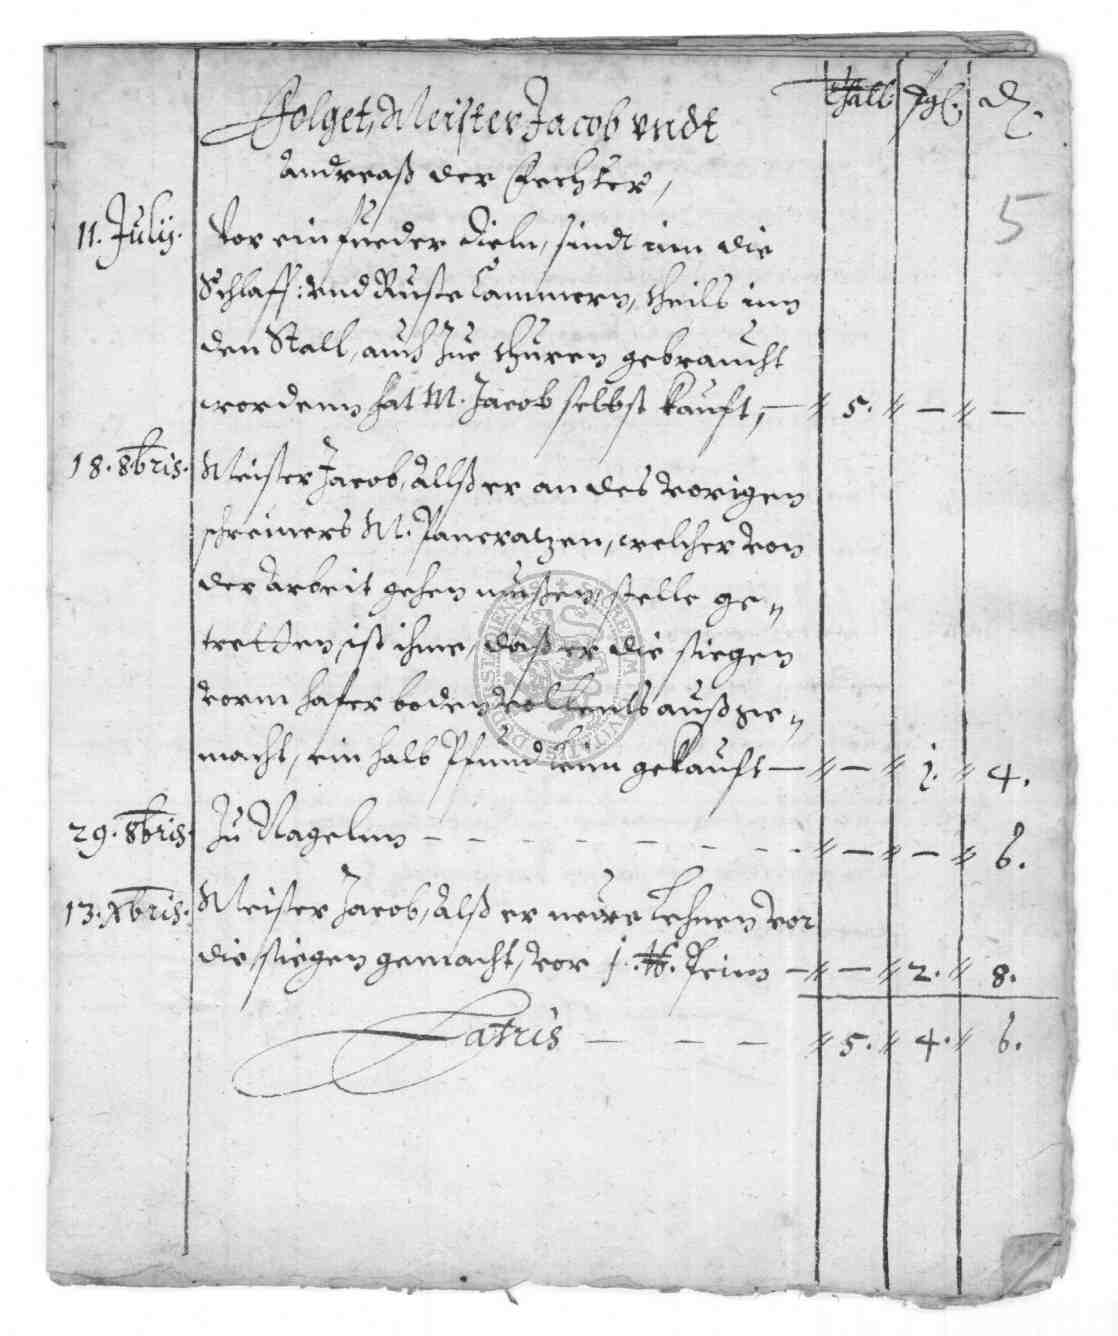 Thall: ßgl. d.
Folget, Meister Jacob vndt
Andreaß der Fechter,
5
11. Julij. Vor ein fueder Dieln, sindt inn die
Schlaff: vnd Ruste Cammern, theils inn
den Stall, auch zue thüren gebraucht
wordenn hat M. Jacob selbst kaufft, — // 5. // — // —
18. 8bris. Meister Jacob, Allß er an des vorigen
schreiners M. Pancratzen, welcher von
der Arbeit gehen müßen, stelle ge-
tretten, ist ihme, daß er die stiegen
vorm hafer boden vollents außge-
macht, ein halb Pfund leim gekaufft — // — // 1. // 4.
29. 8bris Zu Nageln — — — // — // — // 6.
13. Xbris. Meister Jacob, Alß er newe Lehnen vor
die stiegen gemacht, vor 1. ℔. leim — // — // 2. // 8.
Latris — — — // 5. // 4. // 6.